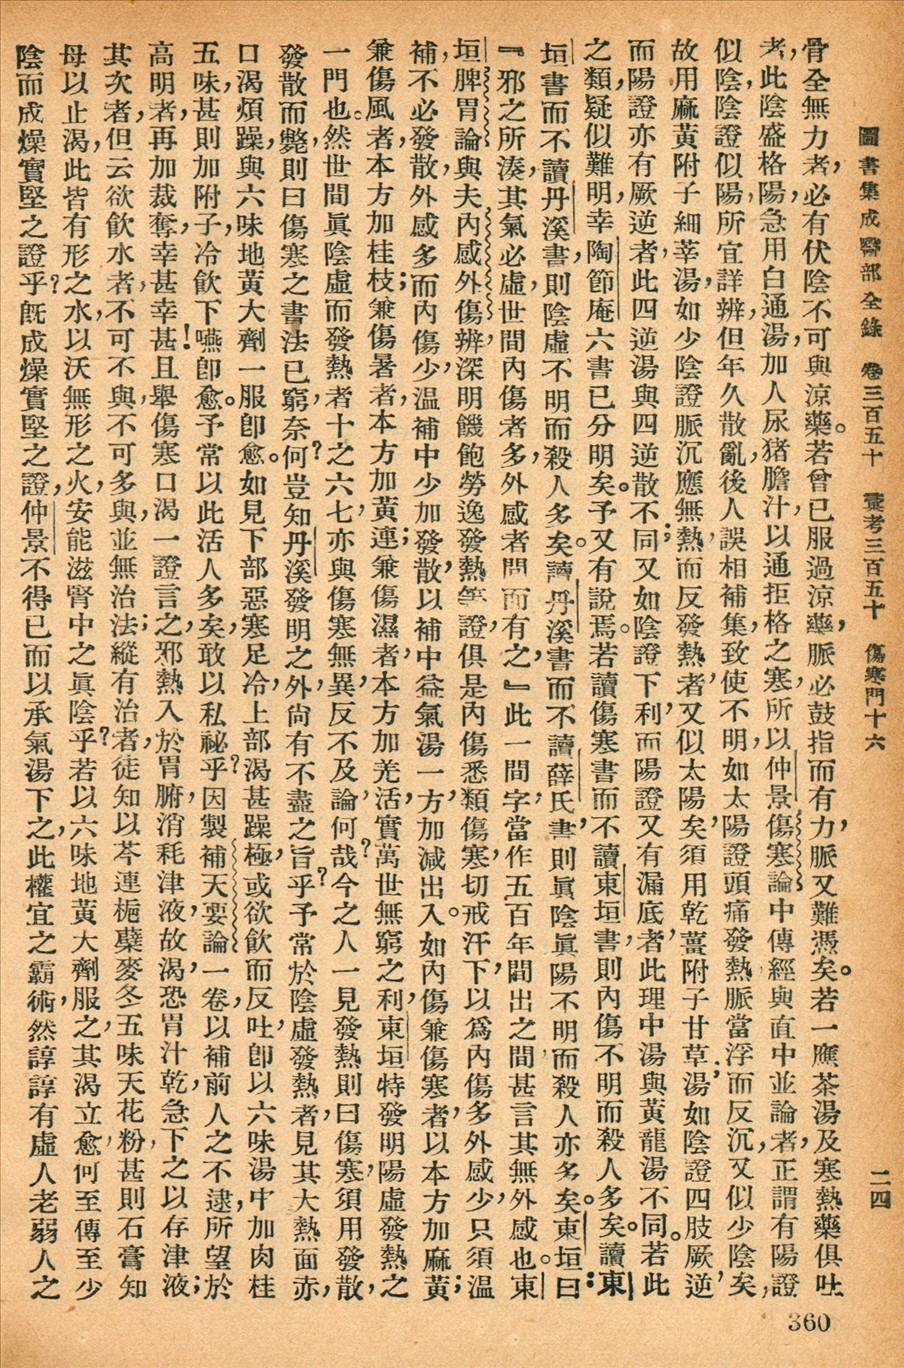 圖書集成醫部全錄　卷三百五十　彙考三百五十　傷寒門十六　二四
骨全無力者，必有伏陰不可與涼藥。若曾已服過涼藥，脈必鼓指而有力，脈又難憑矣。若一應茶湯及寒熱藥俱吐
者，此陰盛格陽，急用白通湯，加人尿猪膽汁，以通拒格之寒，所以仲景傷寒論中傳經與直中並論者，正謂有陽證
似陰，陰證似陽，所宜詳辨，但年久散亂，後人誤相補集，致使不明，如太陽證頭痛發熱，脈當浮而反沉，又似少陰矣，
故用麻黃附子細莘湯，如少陰證脈沉應無熱，而反發熱者，又似太陽矣，須用乾薑附子甘草湯；如陰證四肢厥逆，
而陽證亦有厥逆者，此四逆湯與四逆散不同；又如陰證下利，而陽證又有漏底者，此理中湯與黃龍湯不同。若此
之類，疑似難明，幸陶節庵六書已分明矣。予又有說焉。若讀傷寒書而不讀東垣書，則內傷不明而殺人多矣。讀東
垣書而不讀丹溪書，則陰虛不明而殺人多矣。讀丹溪書而不讀薛氏書，則眞陰眞陽不明而殺人亦多矣。東垣曰：
『邪之所湊，其氣必虛，世間內傷者多，外感者間而有之，』此一間字，當作五百年間出之間甚言其無外感也。東
垣脾胃論與夫內感外傷辨，深明饑飽勞逸發熱等證，俱是內傷，悉類傷寒，切戒汗下，以爲內傷多外感少，只須溫
補，不必發散，外感多而內傷少，温補中少加發散，以補中益氣湯一方，加減出入。如內傷兼傷寒者，以本方加麻黃；
兼傷風者，本方加桂枝；兼傷暑者，本方加黃連；兼傷濕者，本方加羌活，實萬世無窮之利，東垣特發明陽虛發熱之
一門也。然世間眞陰虛而發熱者，十之六七，亦與傷寒無異，反不及論，何哉？今之人一見發熱，則曰傷寒，須用發散，
發散而斃，則曰傷寒之書法已窮，奈何？豈知丹溪發明之外，尙有不盡之旨乎？予常於陰虛發熱者，見其大熱面赤，
口渴煩躁，與六味地黃大劑一服卽愈。如見下部惡寒足冷，上部渴甚躁極，或欲飲而反吐，卽以六味湯，中加肉桂
五味，甚則加附子，冷飲下嚥卽愈。予常以此活人多矣，敢以私祕乎？因製補天要論一卷，以補前人之不逮，所望於
高明者，再加裁奪，幸甚幸甚！且舉傷寒口渴一證言之，邪熱入於胃腑，消耗津液，故渴，恐胃汁乾，急下之以存津液；
其次者，但云欲飲水者，不可不與，不可多與，並無治法；縱有治者，徒知以芩連梔蘗麥冬五味天花粉，甚則石膏知
母以止渴，此皆有形之水，以沃無形之火，安能滋腎中之眞陰乎？若以六味地黃大劑服之，其渴立愈，何至傳至少
陰而成燥實堅之證乎？旣成燥實堅之證，仲景不得已而以承氣湯下之，此權宜之霸術，然諄諄有虛人老弱人之
360